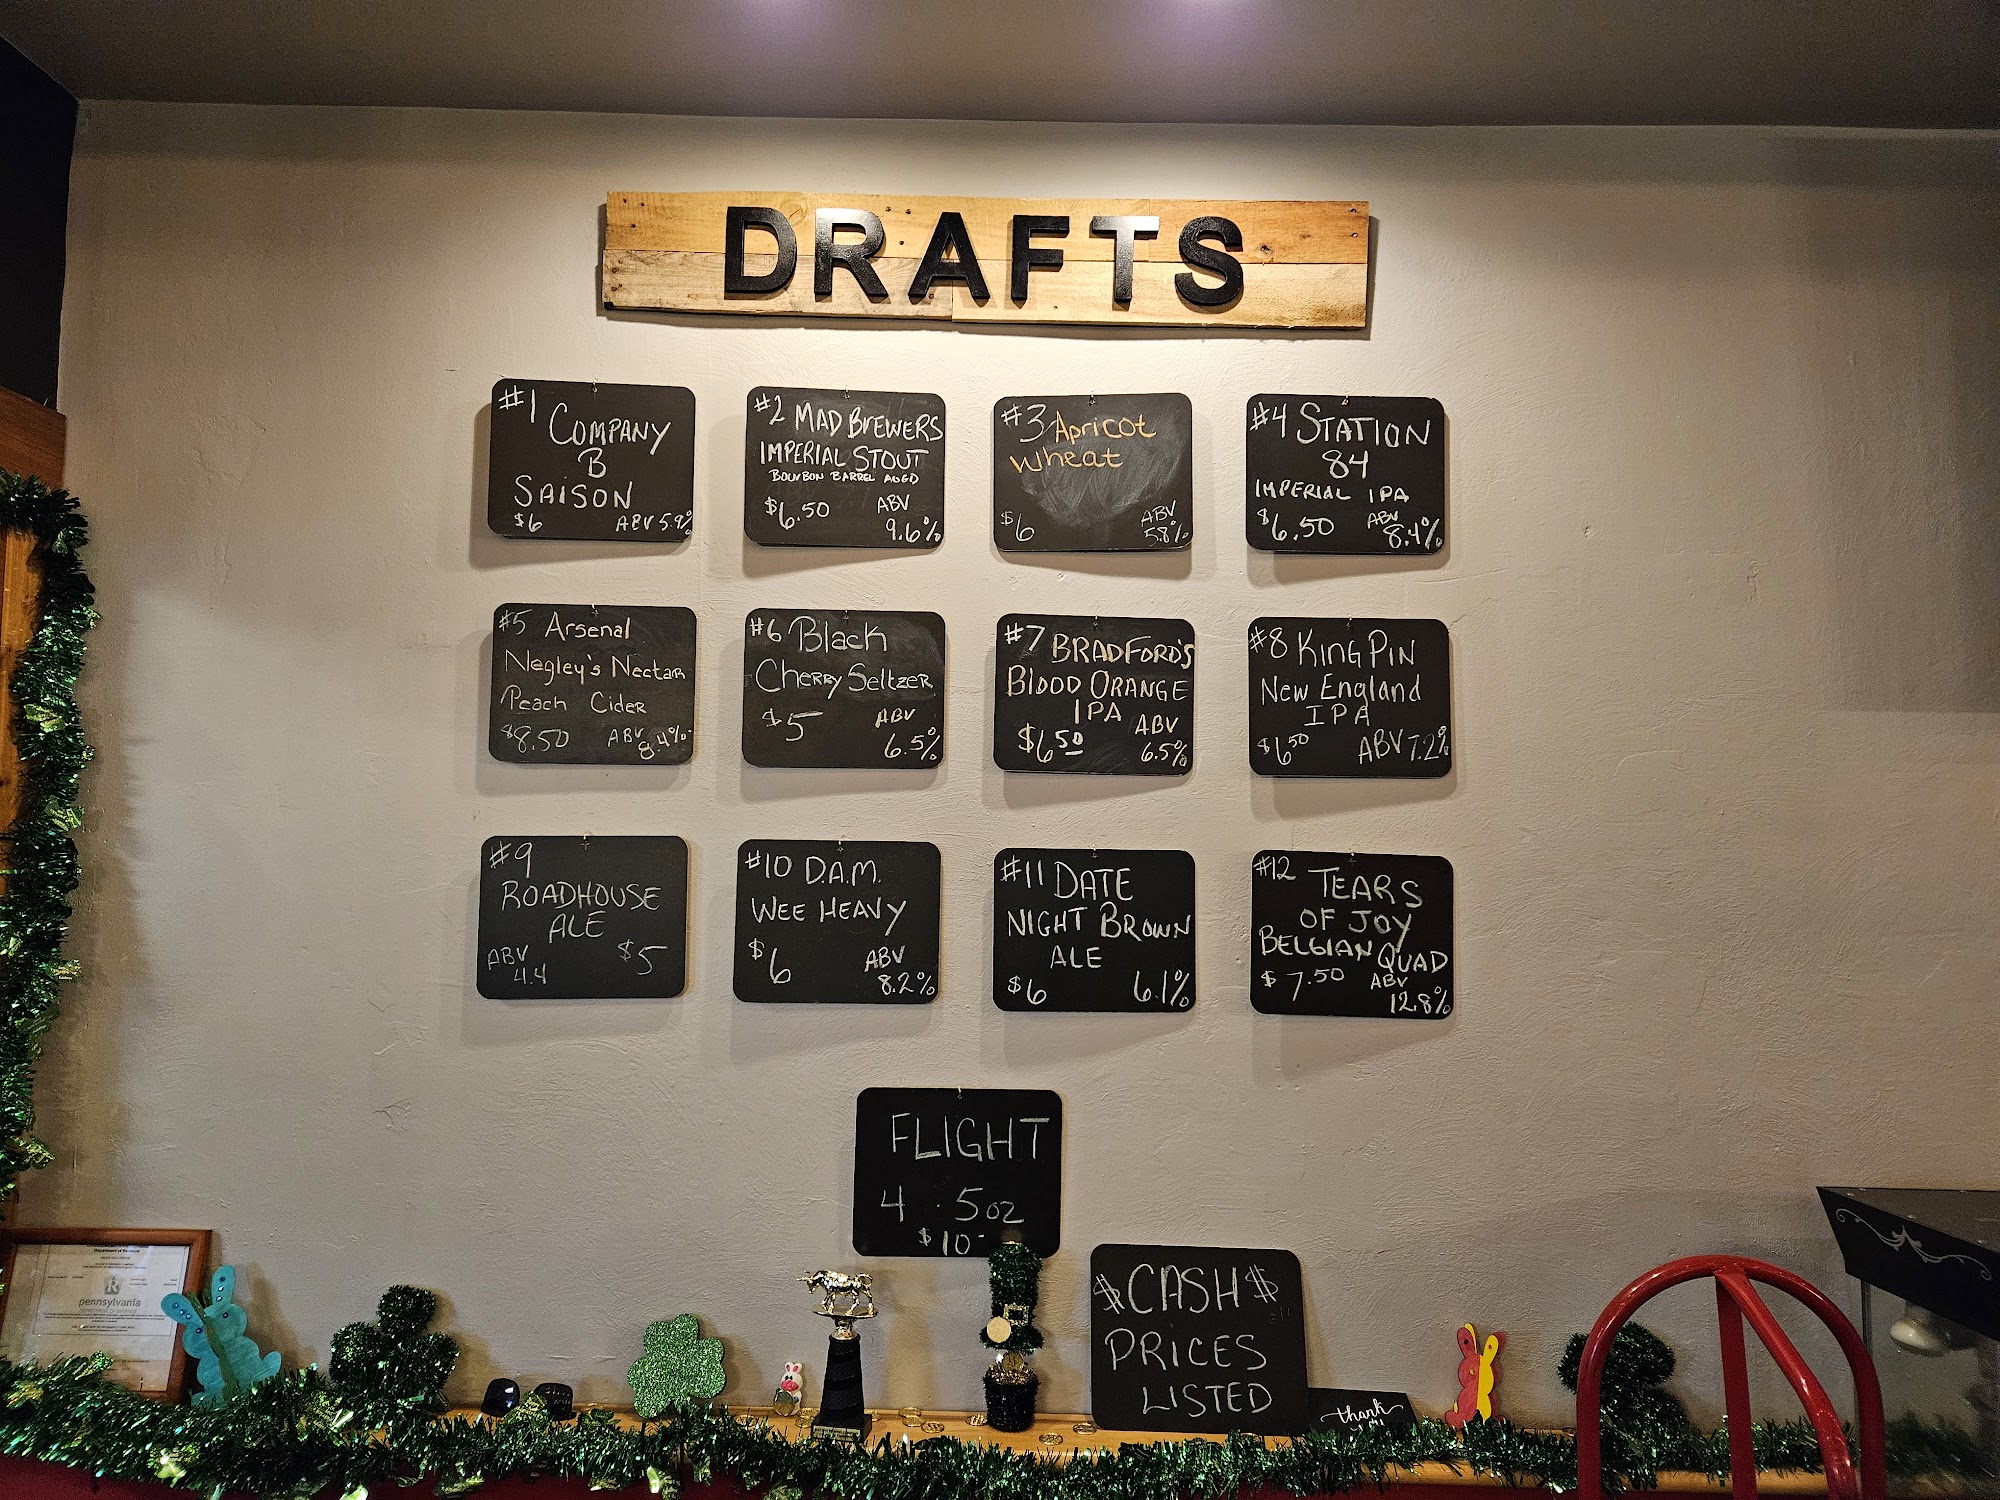 DRAFTS
#1 COMPANY
B
SAISON
$6 ABV 5.9%
#2 MAD BREWERS
IMPERIAL STOUT
BOURBON BARREL AGED
$6.50 ABV
9.6%
#3 Apricot
Wheat
$6 ABV
5.8%
#4 STATION
84
IMPERIAL IPA
$6.50 ABV
8.4%
#5 Arsenal
Negley's Nectar
Peach Cider
$8.50 ABV
8.4%
#6 Black
Cherry Seltzer
$5 ABV
6.5%
#7 BRADFORD'S
BLOOD ORANGE
IPA
$6.50 ABV
6.5%
#8 KING PIN
New England
IPA
$6.50 ABV 7.2%
#9
ROADHOUSE
ALE
ABV
4.4 $5
#10 D.A.M.
WEE HEAVY
$6 ABV
8.2%
#11 DATE
NIGHT BROWN
ALE
$6 6.1%
#12 TEARS
OF JOY
BELGIAN QUAD
$7.50 ABV
12.8%
FLIGHT
4 . 5oz
$10-
$CASH$
PRICES
LISTED
thank
Department of Revenue
pennsylvania